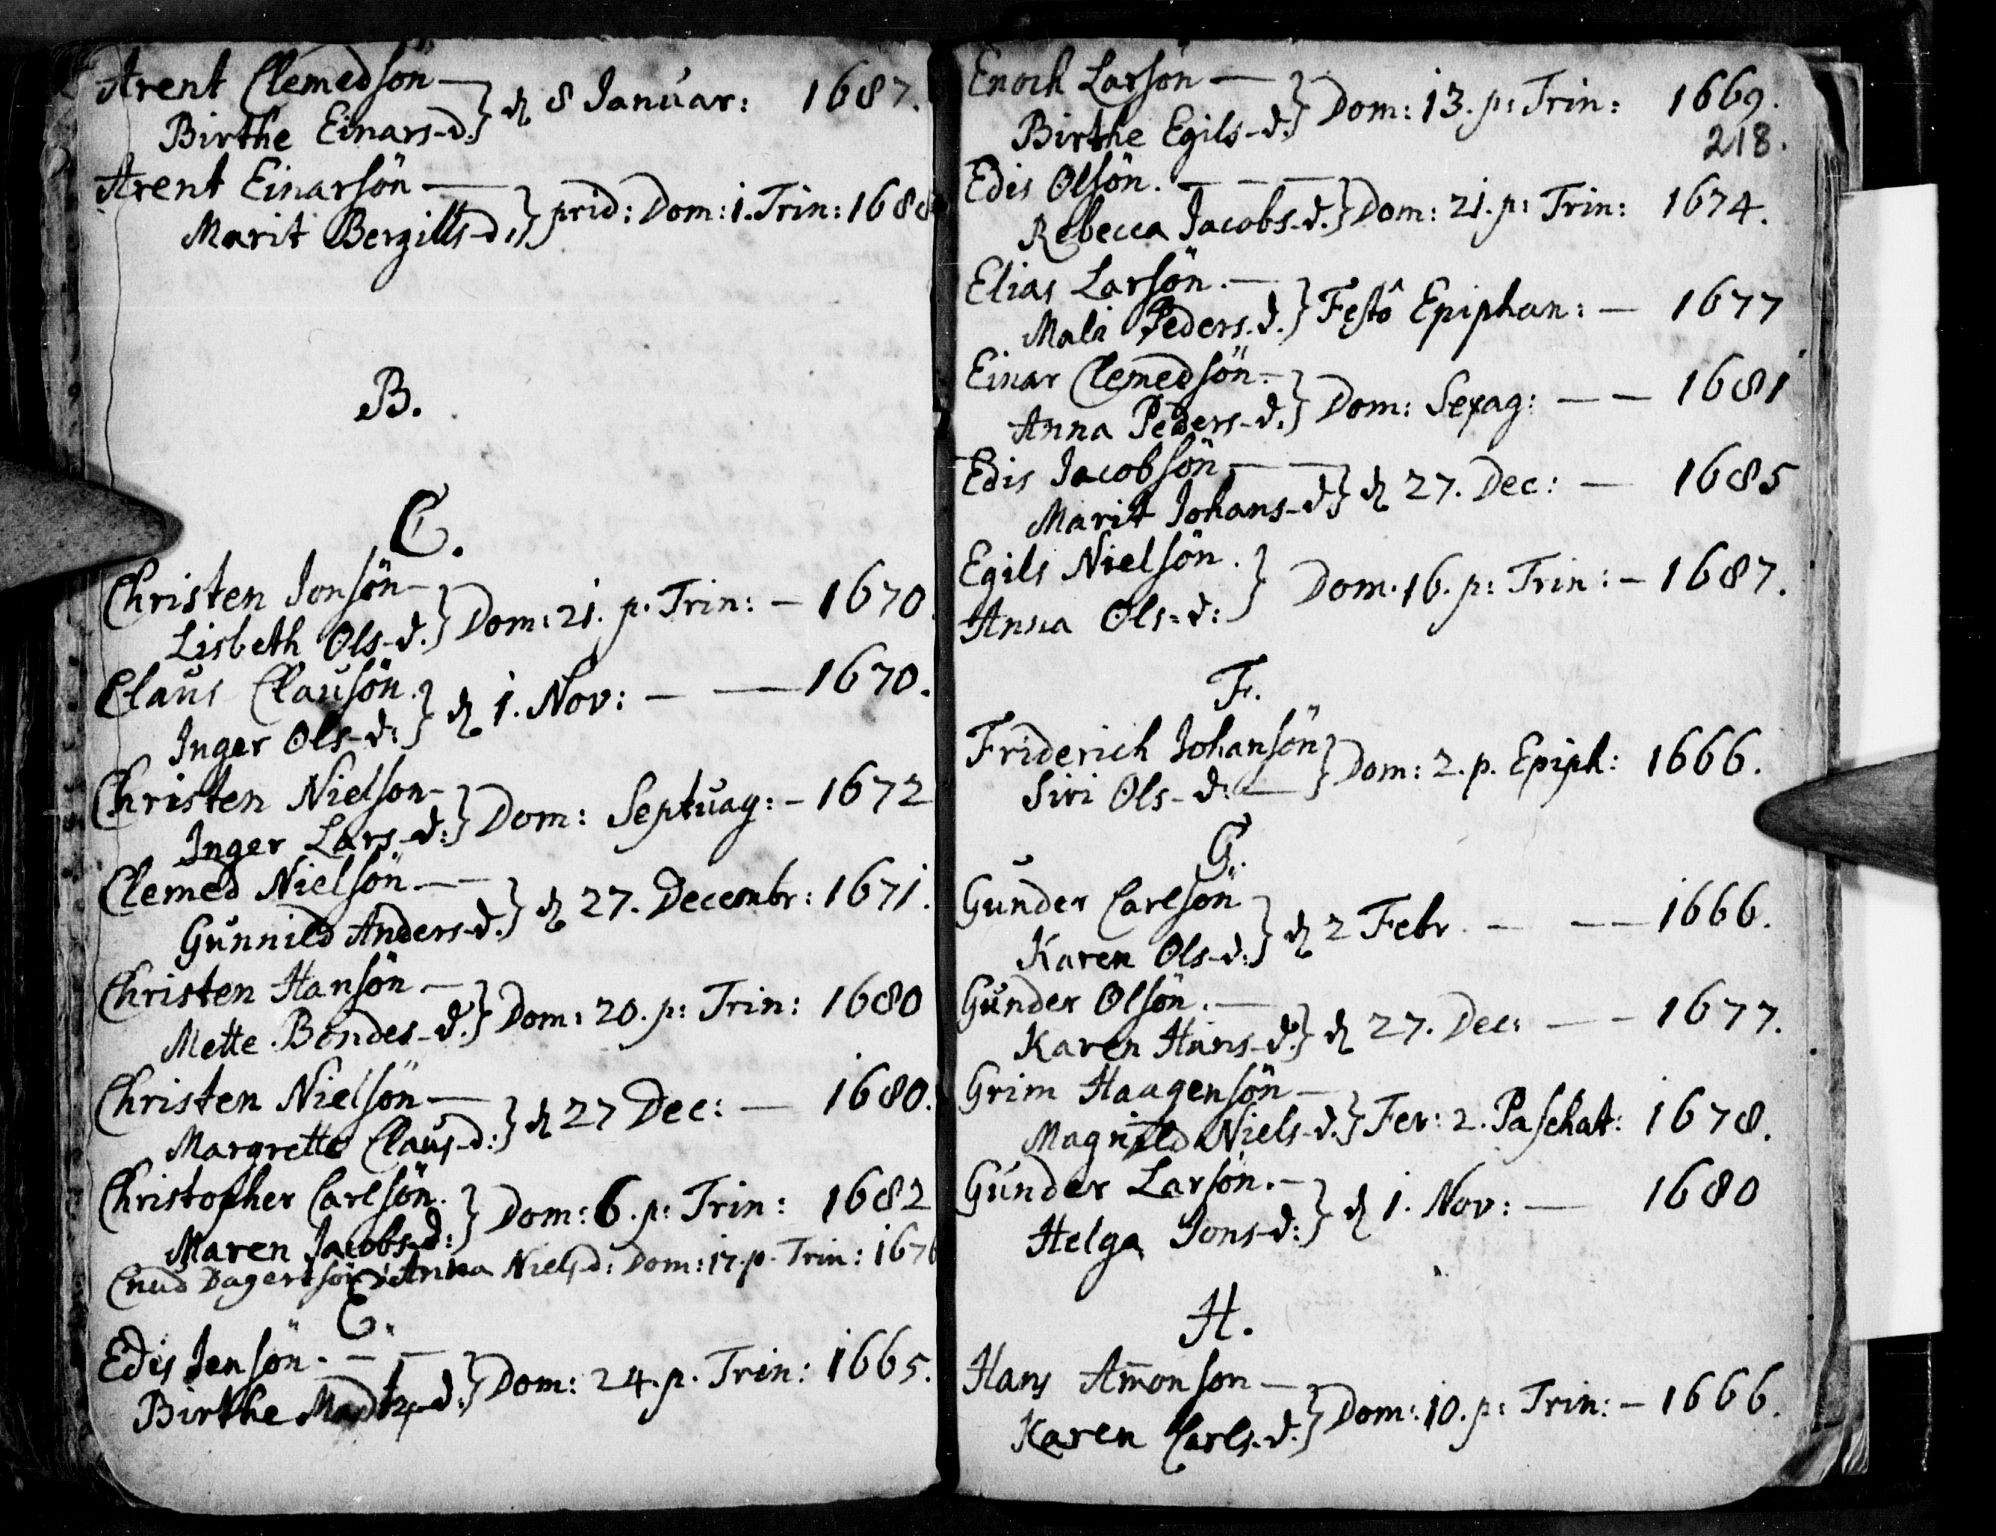 Arent Clemedsön —
Birthe Einars-d. } d 8 Januar: 1687.
Arent Einarsön —
Marit Bergills-d. } prid: Dom: 1. Trin: 168
B.
C.
Christen Jonsön —
Lisbeth Ols-d. } Dom: 21. p. Trin: — 1670.
Claus Clausön.
Inger Ols-d: } d 1. Nov: — — 1670.
Christen Nielson —
Inger Lars-d: } Dom: Septuag: — 1672
Clemed Nielsön — —
Gunnild Anders-d. } d 27. Decembr: 1671.
Christen Hansön —
Mette Bondes-d. } Dom: 20. p: Trin: 1680
Christen Nielsön —
Margrette Claus-d: } d 27 Dec: — 1680.
Christopher Carlsön.
Maren Jacobs-d: } Dom: 6. p: Trin: 1682
Cnud Dagertsön Anna Niels-d: Dom: 17. p. Trin: 167
E.
Edis Jensön. — —
Birthe -d. } Dom: 24. p. Trin: 1665.
Enoch Larsön —
Birthe Egils-d. } Dom: 13. p: Trin: 1669.
218.
Edis Olsön. — — —
Rebecca Jacobs-d. } Dom: 21. p: Trin: 1674.
Elias Larsön. —
Mali Peders-d. } Festô Epiphan: — 1677
Einar Clemedsön. —
Anna Peders-d. } Dom: Sexag: — — 1681
Edis Jacobsön — —
Marit Johans-d } d 27. Dec: — 1685
Egils Nielsön.
Anna Ols-d: } Dom. 16. p: Trin: — 1687.
F.
Friderich Johansön
Siri Ols-d: — } Dom: 2. p. Epiph: 1666.
G.
Gunder Carlsön
Karen Ols-d: } d 2 Febr. — — — 1666.
Gunder Olsön. —
Karen Hans-d. } d 27. Dec: — — 1677.
Grim Haagensön —
Magnild Niels-d. } Fer: 2. Paschat: 1678.
Gunder Larsön. —
Helga Jons-d: } d 1. Nov: — 1680
H.
Hans Amonson —
Karen Carls-d. } Dom: 10. p: Trin: — 1666.